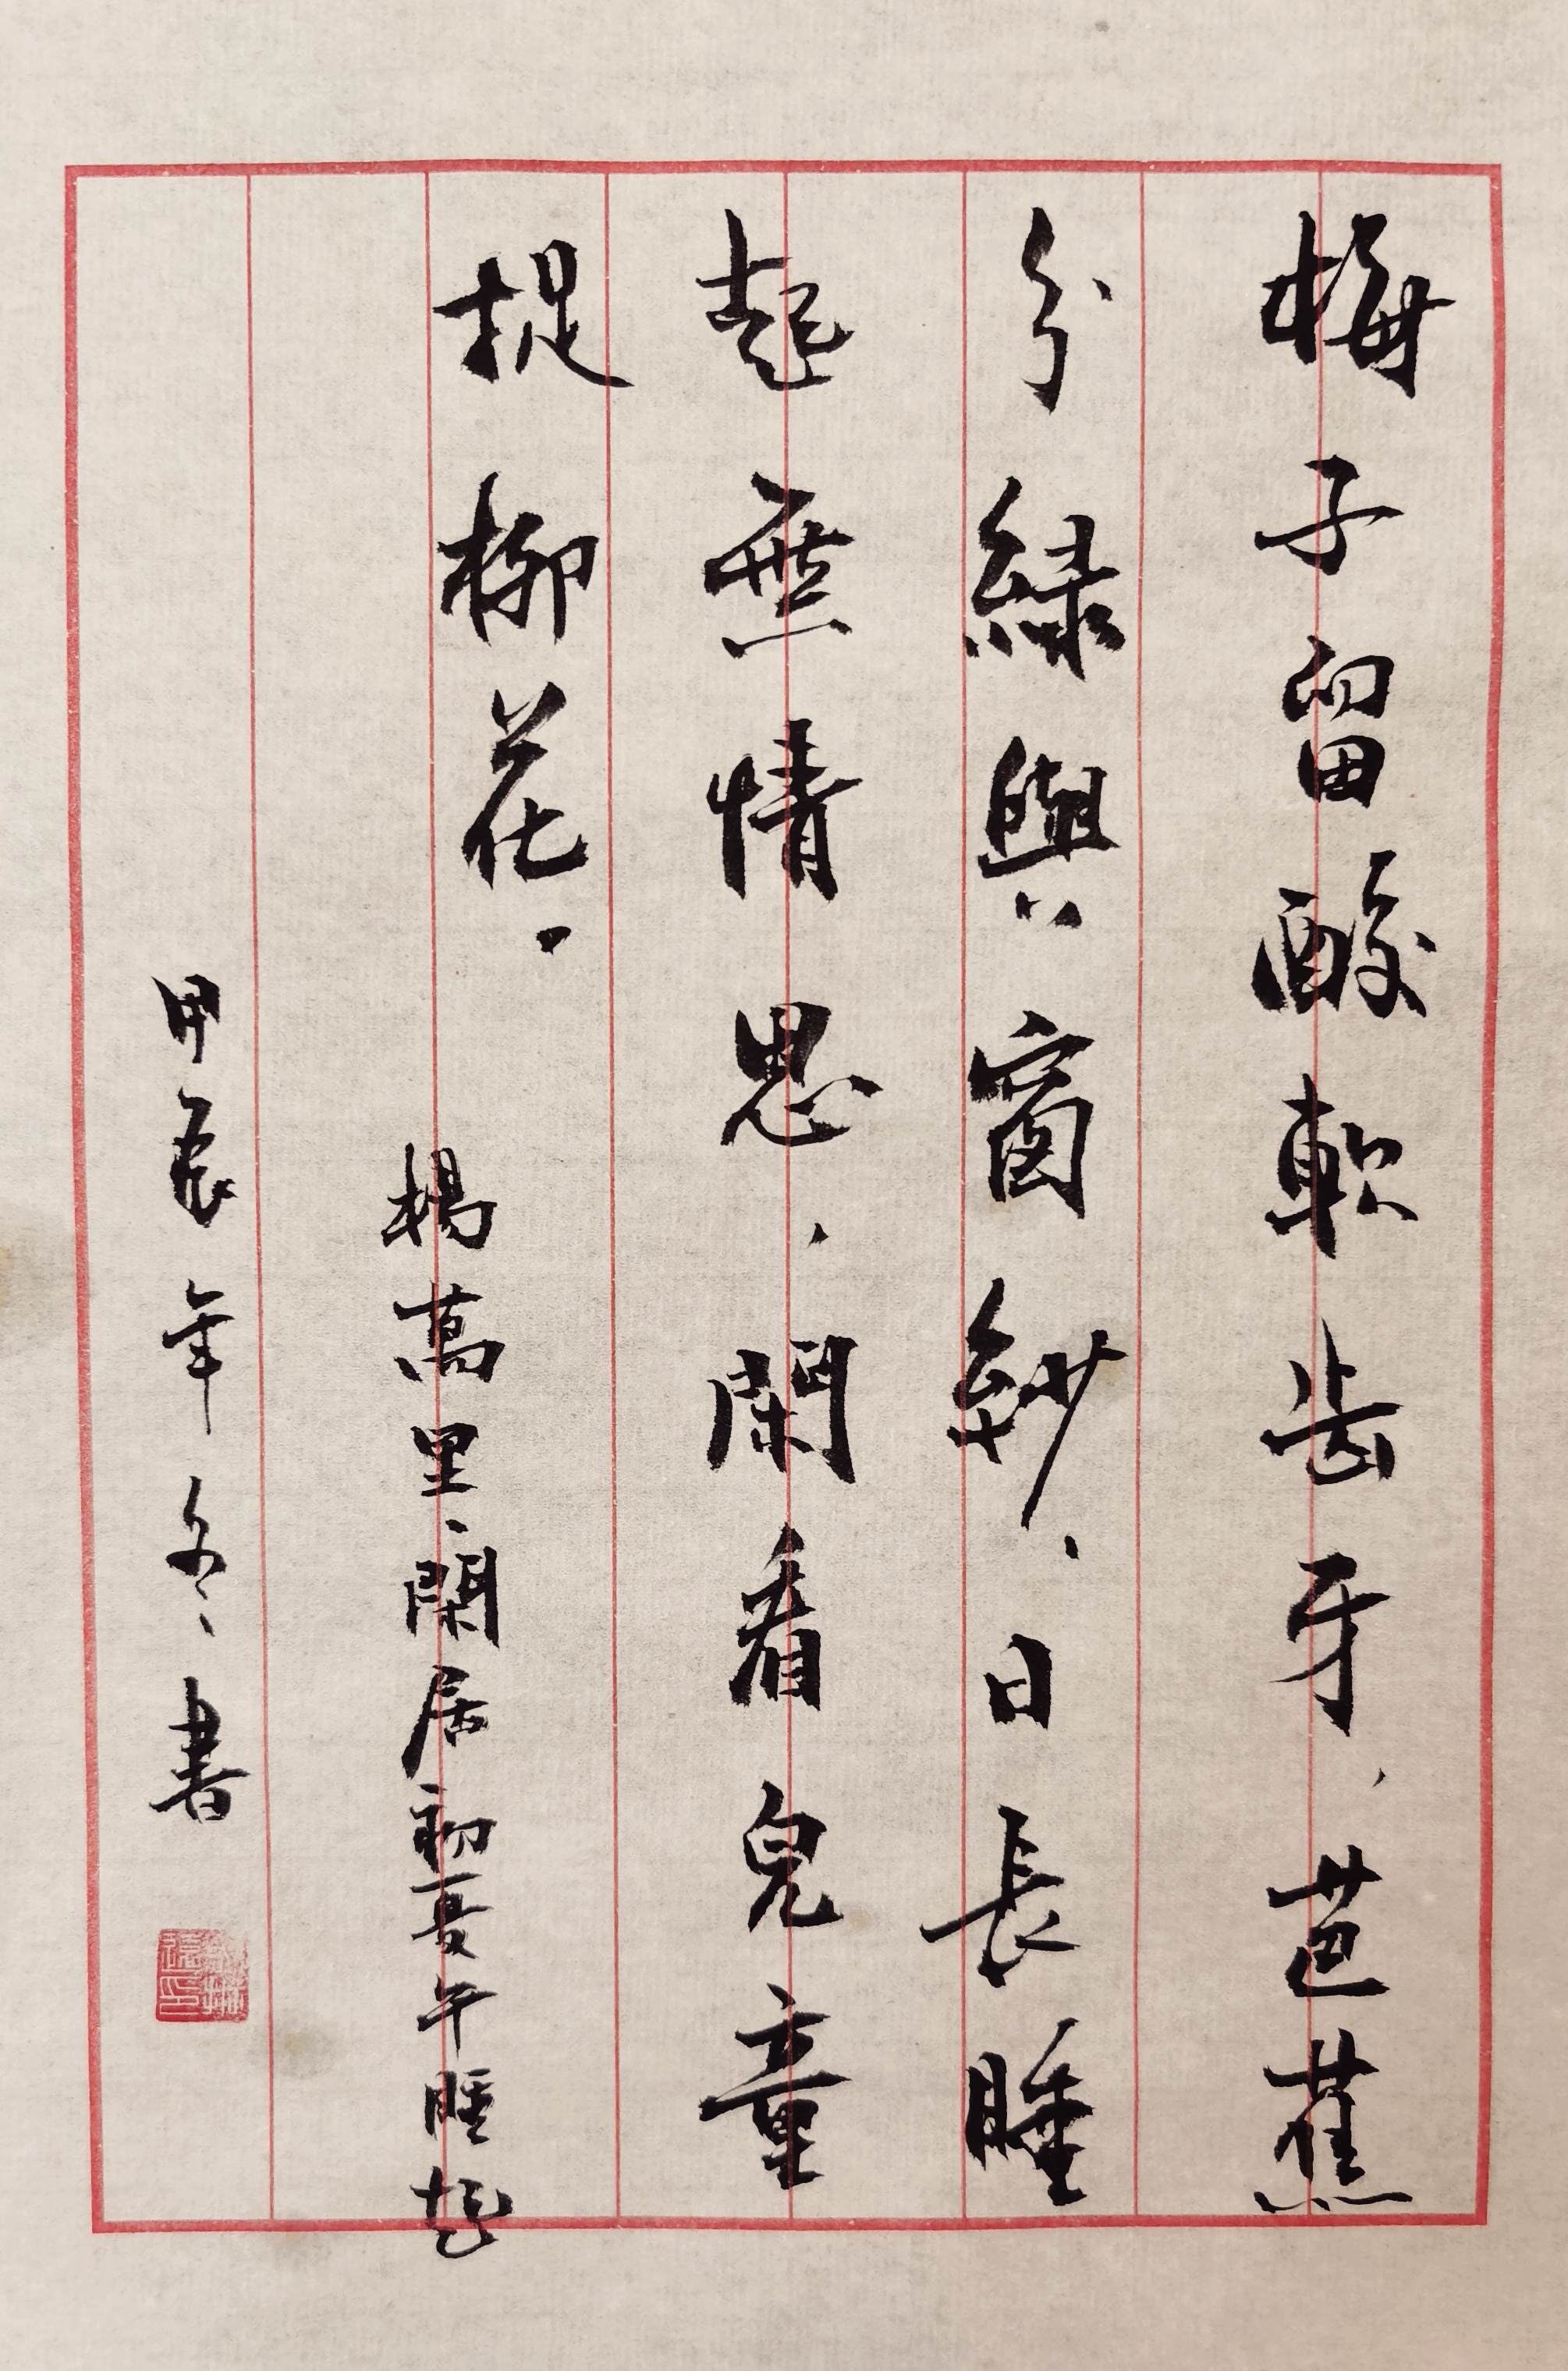 梅子留酸軟齒牙，芭蕉
分緑與窗紗，日長睡
起無情思，閑看兒童
捉柳花。
楊萬里、閑居初夏午睡起
甲辰年冬、書